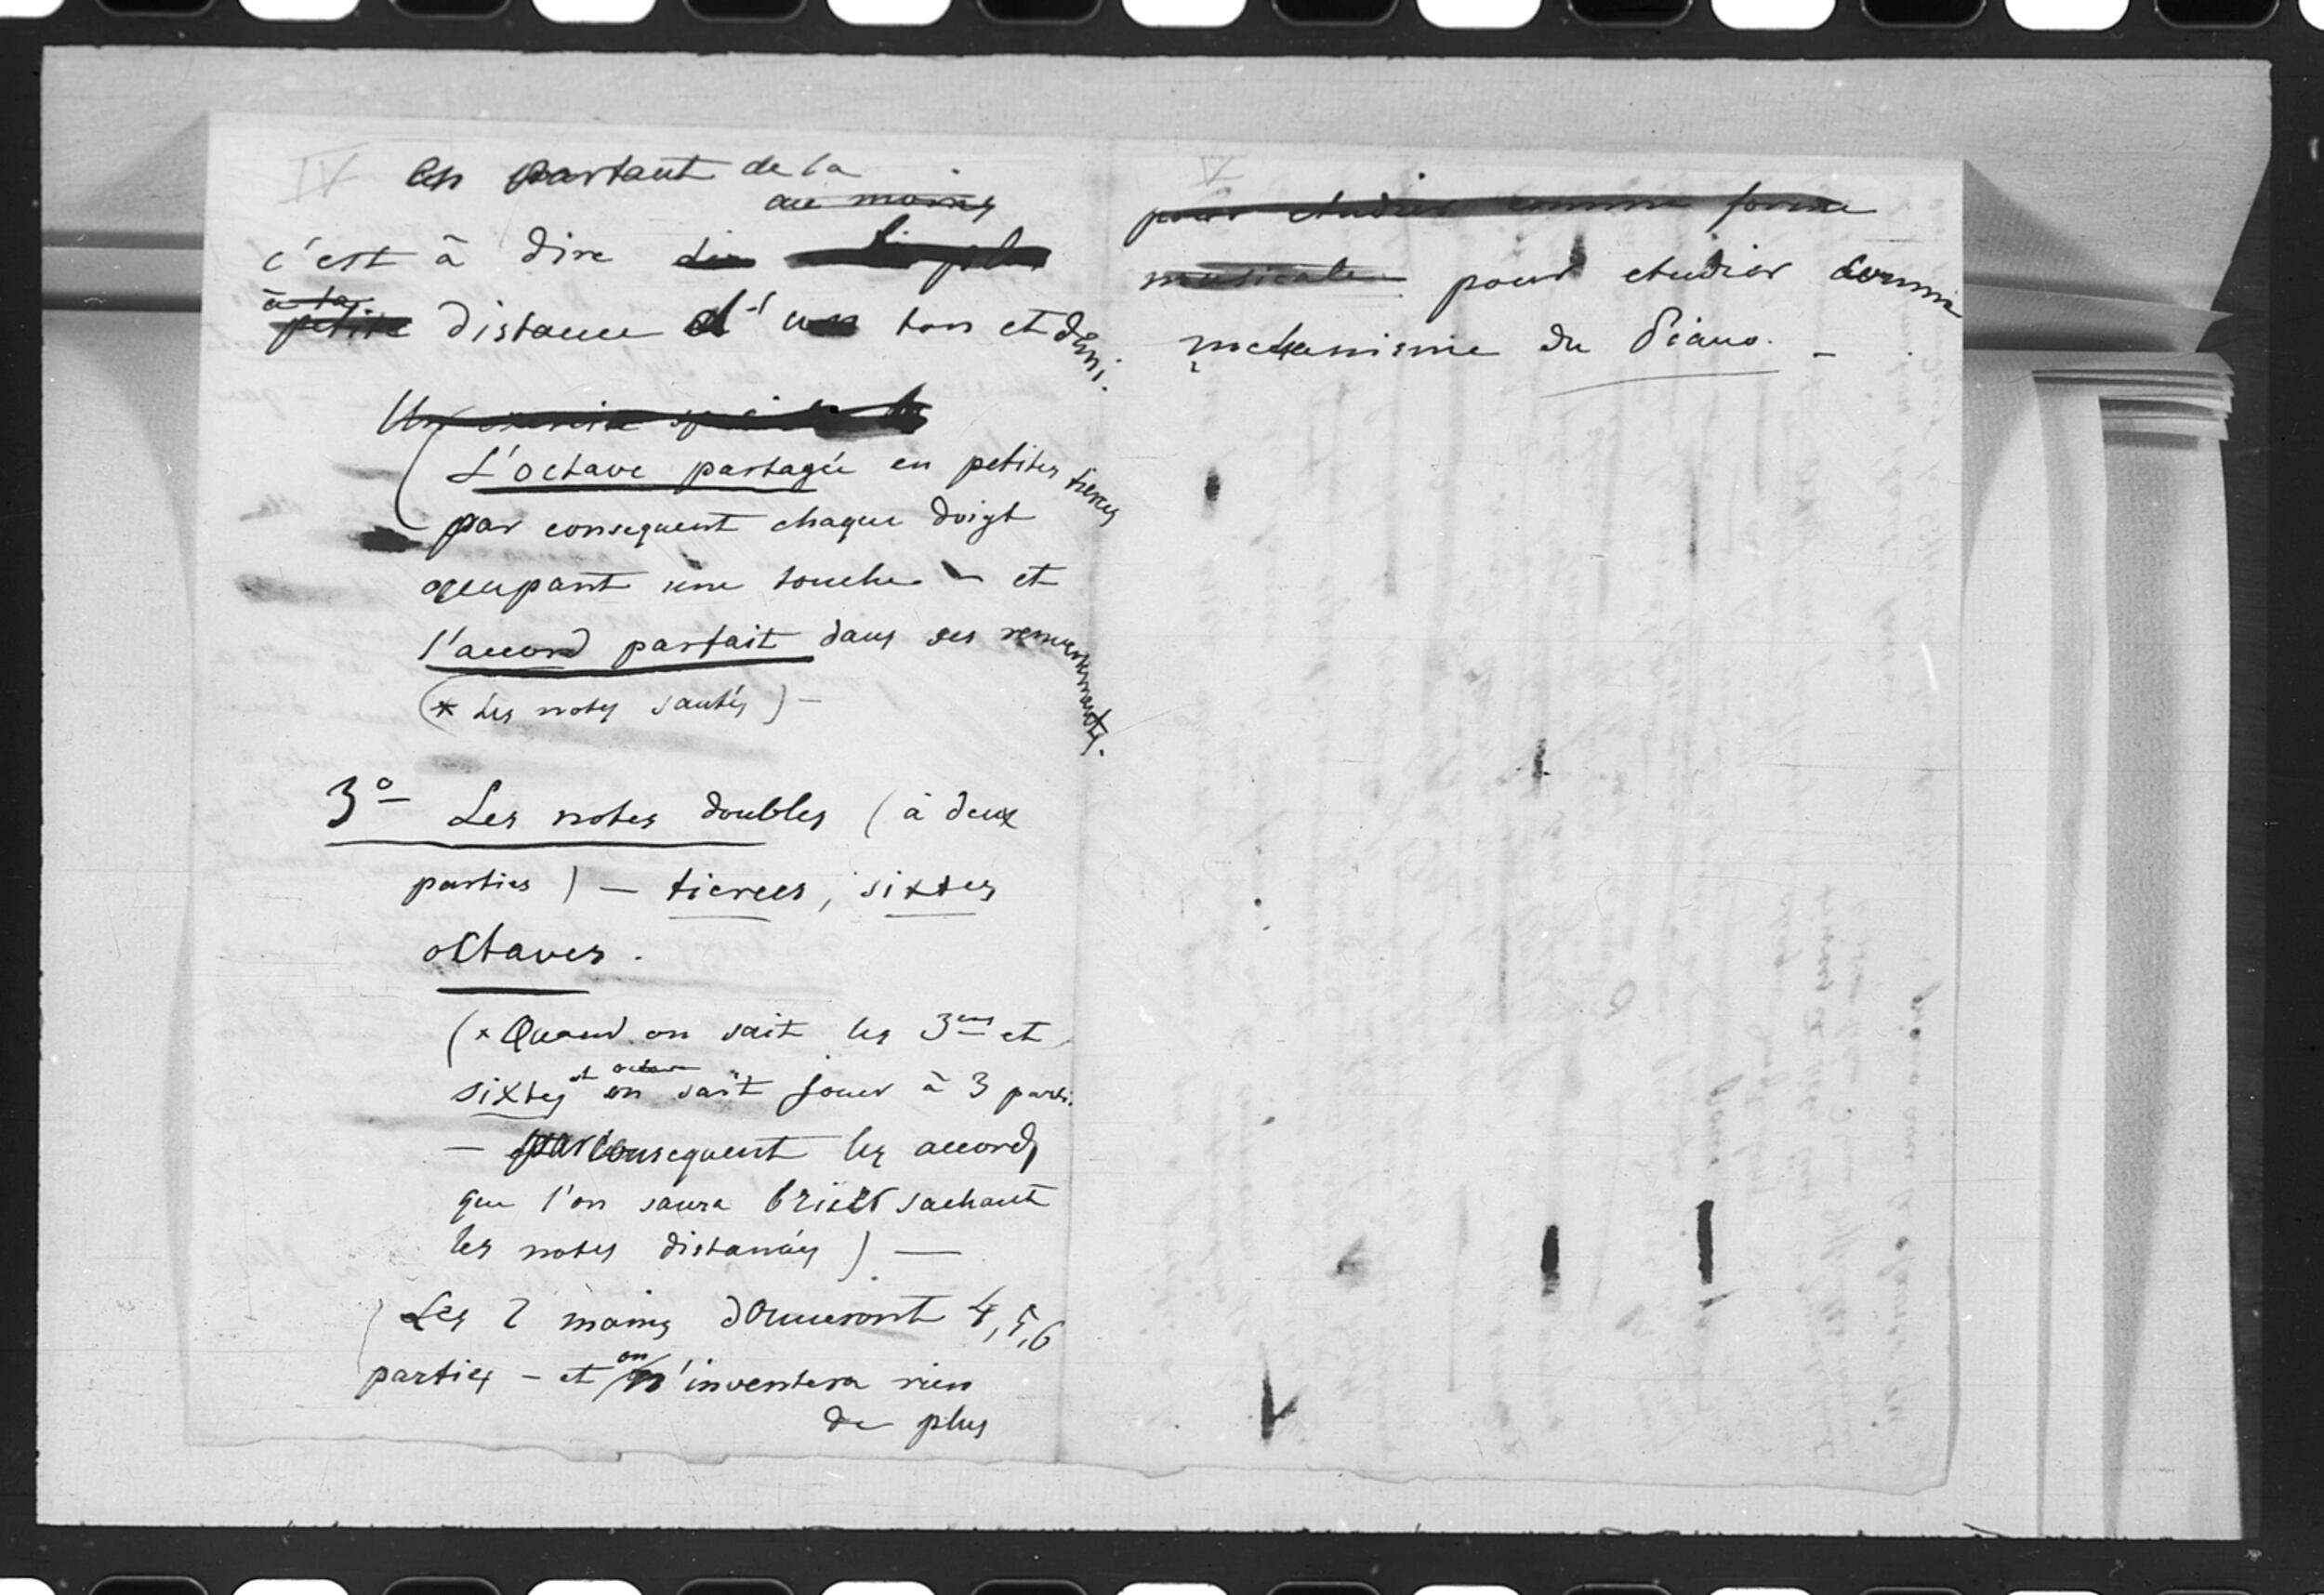 IV
en partant de la
au moins
c'est à dire
à la
petite distance d'un ton et demi.
Un
(L'octave partagée en petites tierces
par consequent chaque doigt
occupant une touche – et
l'accord parfait dans ses renversements.
(* Les notes sautés) –
3º Les notes doubles (à deux
parties) – tierces, sixtes
octaves.
(* Quand on sait les 3ces et
et octaves
sixtes on sait jouer à 3 parti.
– par consequent les accords
que l'on saura briser sachant
les notes distancées) —
Les 2 mains donneront 4, 5, 6
on
parties – et n'inventera rien
de plus
V
pour etudier comme forme
musicale pour etudier comme
mechanisme du Piano. –